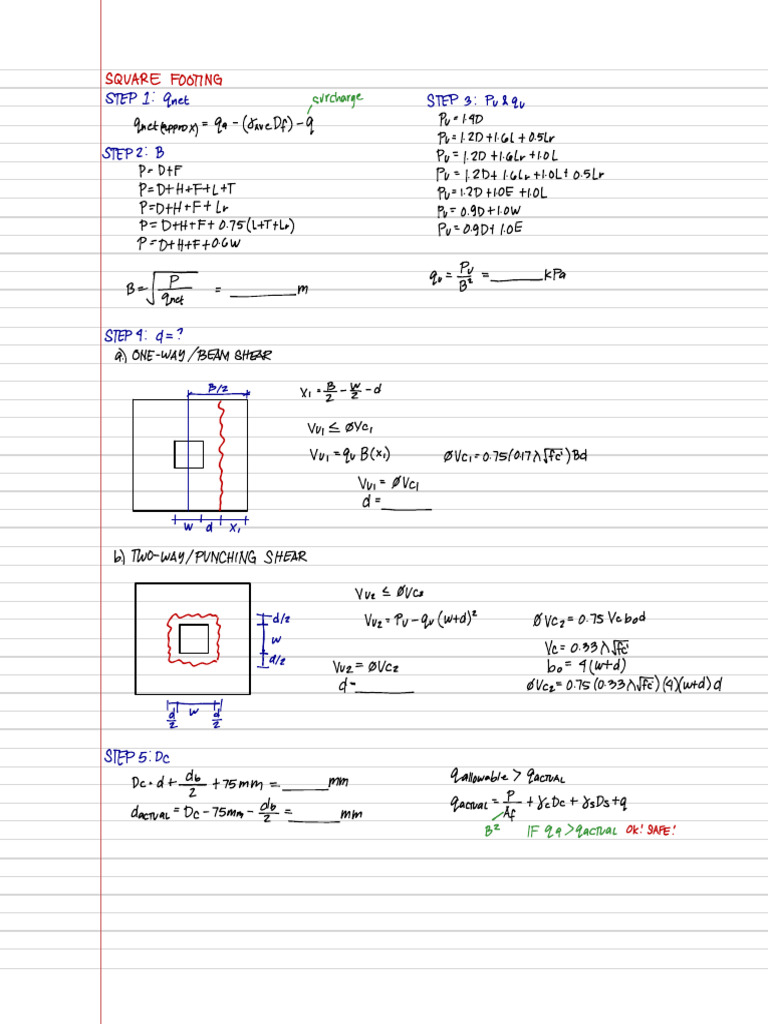 SQUARE FOOTING
STEP 1: qnet
surcharge
qnet(approx) = qa - (γave Df) - q
STEP 2: B
P = D+F
P = D+H+F+L+T
P = D+H+F+Lr
P = D+H+F+0.75(L+T+Lr)
P = D+H+F+0.6W
B = √(P/qnet) = ________ m
STEP 3: Pu & qu
Pu = 1.4D
Pu = 1.2D+1.6L+0.5Lr
Pu = 1.2D+1.6Lr+1.0L
Pu = 1.2D+1.6Lr+1.0L+0.5Lr
Pu = 1.2D+1.0E+1.0L
Pu = 0.9D+1.0W
Pu = 0.9D+1.0E
qu = Pu/B² = ________ kPa
STEP 4: d = ?
a) ONE-WAY/BEAM SHEAR
B/2
W d X1
X1 = B/2 - W/2 - d
Vu1 ≤ ØVc1
Vu1 = qu B(x1)
ØVc1 = 0.75(0.17λ√fc')Bd
Vu1 = ØVc1
d = ________
b) TWO-WAY/PUNCHING SHEAR
d/2
W
d/2
d/2 W d/2
Vu2 ≤ ØVc2
Vu2 = Pu - qu(w+d)²
ØVc2 = 0.75 Vc bo d
Vc = 0.33λ√fc'
bo = 4(w+d)
Vu2 = ØVc2
d = ________
ØVc2 = 0.75(0.33λ√fc')(4)(w+d)d
STEP 5: Dc
Dc = d + db/2 + 75mm = ________ mm
dACTUAL = Dc - 75mm - db/2 = ________ mm
qallowable > qACTUAL
qACTUAL = P/Af + γcDc + γsDs + q
B²
IF qa > qACTUAL OK! SAFE!